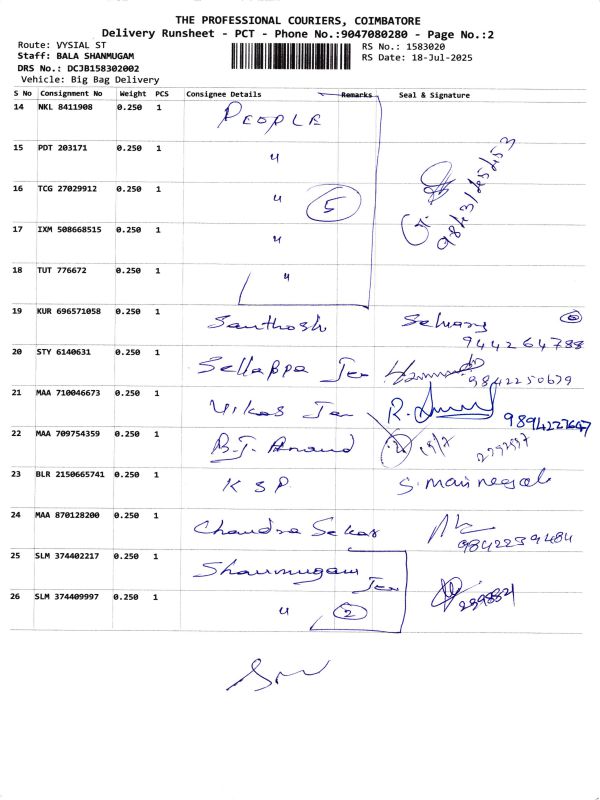 THE PROFESSIONAL COURIERS, COIMBATORE
Delivery Runsheet - PCT - Phone No.:9047080280 - Page No.:2
Route: VYSIAL ST
Staff: BALA SHANMUGAM
DRS No.: DCJB158302002
Vehicle: Big Bag Delivery
RS No.: 1583020
RS Date: 18-Jul-2025
S No Consignment No Weight PCS Consignee Details Remarks Seal & Signature
14 NKL 8411908 0.250 1 PEOPLE
15 PDT 203171 0.250 1 "
16 TCG 27029912 0.250 1 " 5
17 IXM 508668515 0.250 1 "
18 TUT 776672 0.250 1 "
19 KUR 696571058 0.250 1 Santhosh
9442264788
20 STY 6140631 0.250 1 Sellappa Jex 9842250679
21 MAA 710046673 0.250 1 Vikas Jex
22 MAA 709754359 0.250 1 B.J. Anand 2
23 BLR 2150665741 0.250 1 K S P
24 MAA 870128200 0.250 1 Chandra Sekar
9842239484
25 SLM 374402217 0.250 1 Shanmugam Jex
26 SLM 374409997 0.250 1 " 2